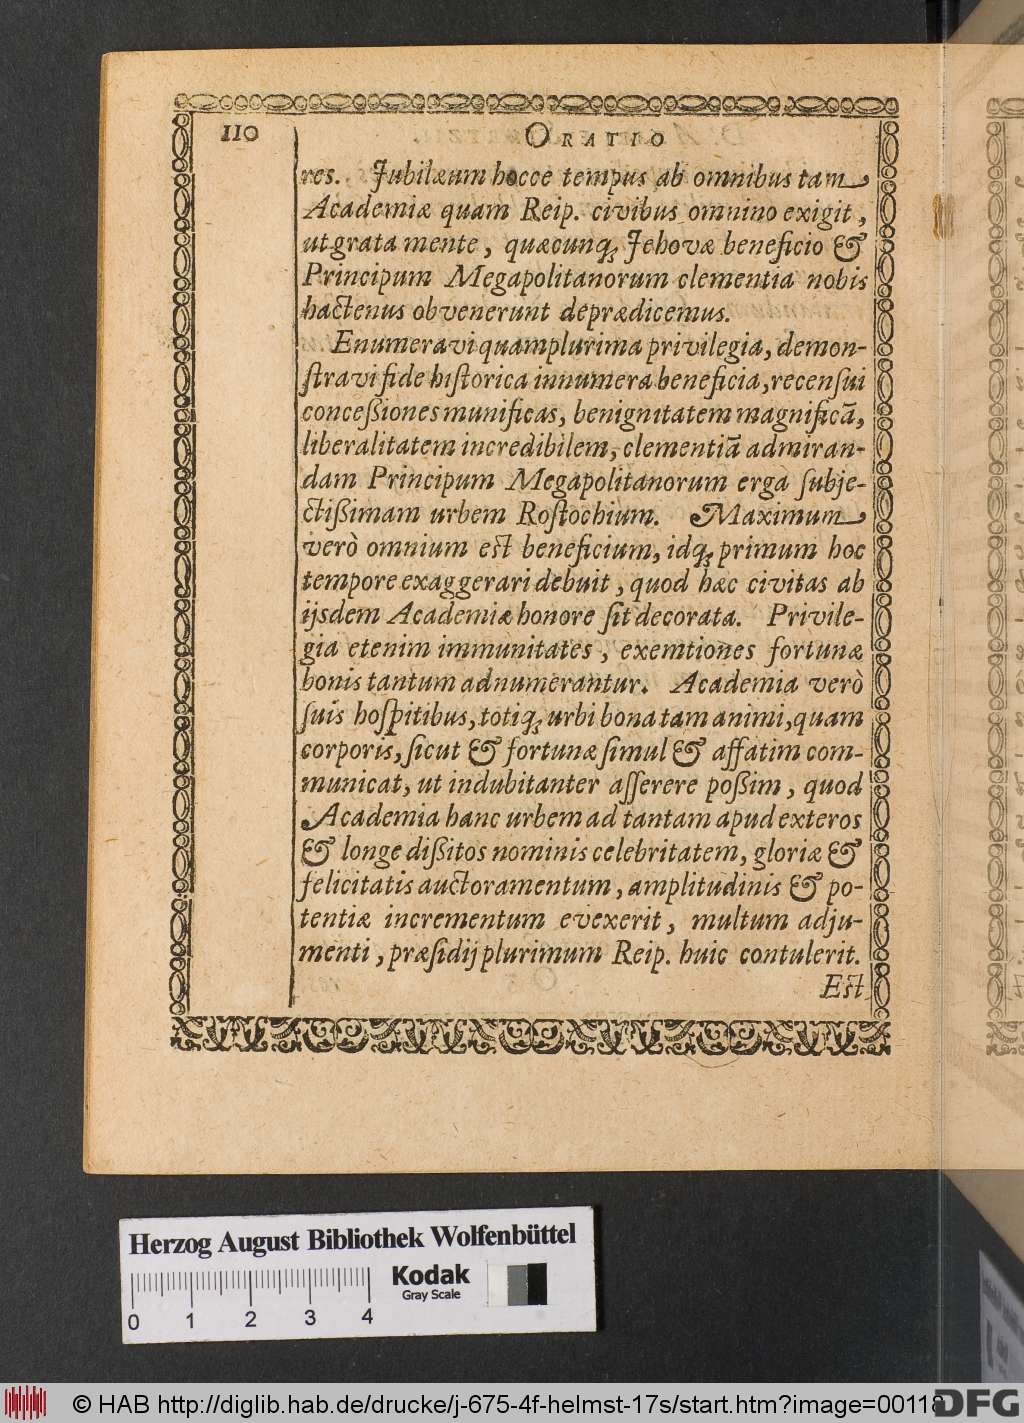 110
ORATIO
res. Jubilæum hocce tempus ab omnibus tam
Academiæ quam Reip. civibus omnino exigit,
ut grata mente, quæcunq; Jehovæ beneficio &
Principum Megapolitanorum clementia nobis
hactenus obvenerunt deprædicemus.
Enumeravi quamplurima privilegia, demon-
ſtravi fide hiſtorica innumera beneficia, recenſui
conceßiones munificas, benignitatem magnificā,
liberalitatem incredibilem, clementiā admiran-
dam Principum Megapolitanorum erga ſubje-
ctißimam urbem Roſtochium. Maximum
verò omnium eſt beneficium, idq; primum hoc
tempore exaggerari debuit, quod hæc civitas ab
ijsdem Academiæ honore ſit decorata. Privile-
gia etenim immunitates, exemtiones fortunæ
bonis tantum adnumerantur. Academia verò
ſuis hoſpitibus, totiq; urbi bona tam animi, quam
corporis, ſicut & fortunæ ſimul & affatim com-
municat, ut indubitanter aſſerere poßim, quod
Academia hanc urbem ad tantam apud exteros
& longe dißitos nominis celebritatem, gloriæ &
felicitatis auctoramentum, amplitudinis & po-
tentiæ incrementum evexerit, multum adju-
menti, præſidij plurimum Reip. huic contulerit.
Eſt
Herzog August Bibliothek Wolfenbüttel
Kodak
Gray Scale
0 1 2 3 4
© HAB http://diglib.hab.de/drucke/j-675-4f-helmst-17s/start.htm?image=00118
DFG